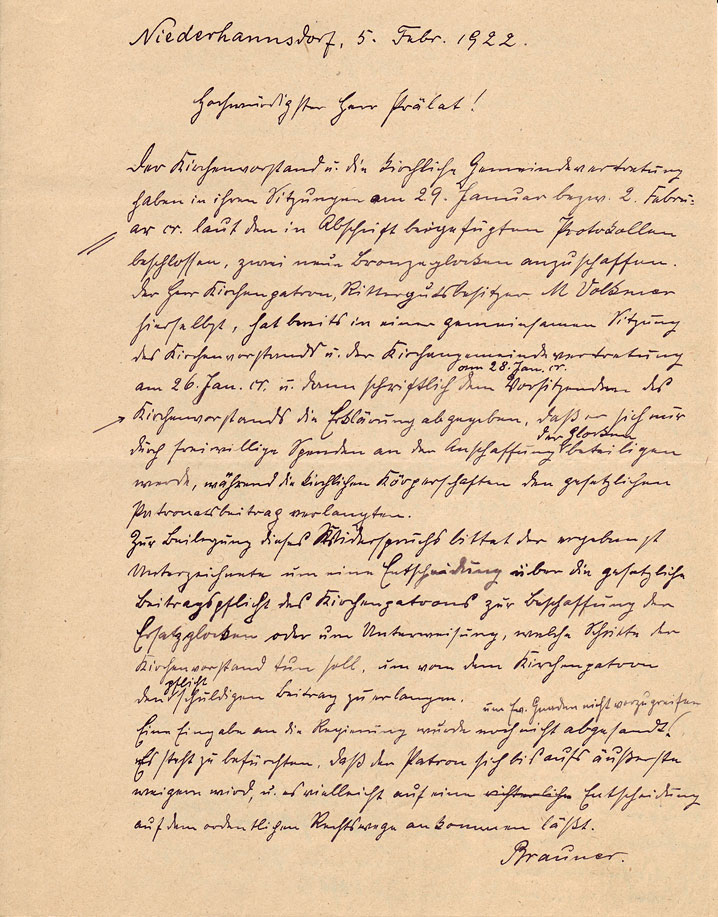 Niederhannsdorf, 5. Febr. 1922.
Hochwürdigster Herr Prälat!
Der Kirchenvorstand u. die kirchliche Gemeindevertretung
haben in ihren Sitzungen am 29. Januar bezw. 2. Febru-
ar cr. laut den in Abschrift beigefügten Protokollen
beschlossen, zwei neue Bronzeglocken anzuschaffen.
Der Herr Kirchenpatron, Rittergutsbesitzer M Volkmer
hierselbst, hat bereits in einer gemeinsamen Sitzung
des Kirchenvorstands u. der Kirchengemeindevertretung
vom 28. Jan. cr.
am 26. Jan. cr. u. dann schriftlich dem Vorsitzenden des
Kirchenvorstands die Erklärung abgegeben, daß er sich nur
der Glocken
durch freiwillige Spenden an der Anschaffung beteiligen
werde, während die kirchlichen Körperschaften den gesetzlichen
Patronatsbeitrag verlangten.
Zur Beilegung dieses Widerspruchs bittet der ergebenst
Unterzeichnete um eine Entscheidung über die gesetzliche
Beitragspflicht des Kirchenpatrons zur Beschaffung der
Ersatzglocken oder um Unterweisung, welche Schritte der
Kirchenvorstand tun soll, um von dem Kirchenpatron
pflicht
den schuldigen Beitrag zu erlangen.
um Ew. Gnaden nicht vorzugreifen
Eine Eingabe an die Regierung wurde noch nicht abgesandt,
Es steht zu befürchten, daß der Patron sich bis aufs äußerste
weigern wird, u. es vielleicht auf eine richterliche Entscheidung
auf dem ordentlichen Rechtswege ankommen läßt.
Brauner.